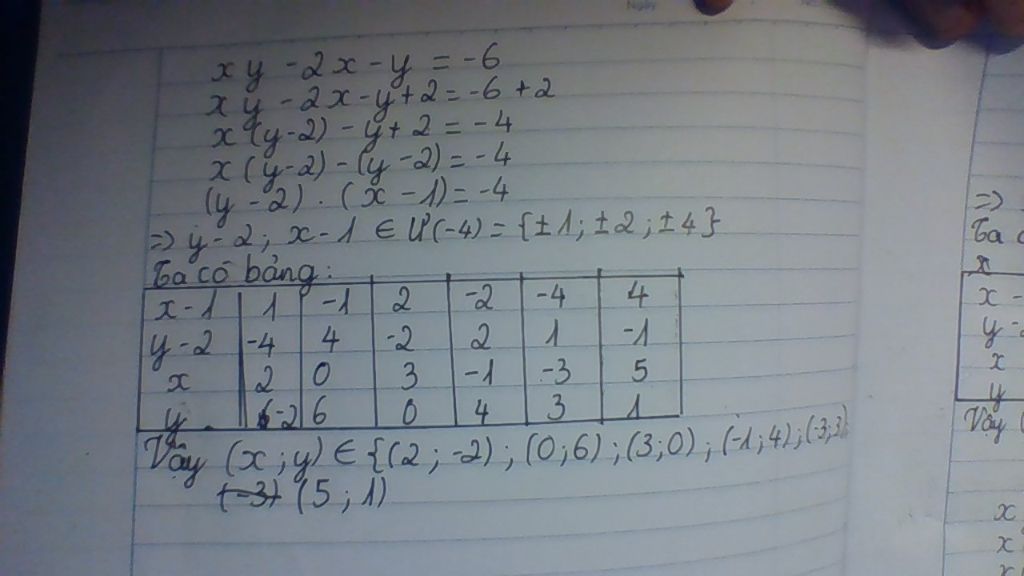 Ngày
xy - 2x - y = -6
xy - 2x - y + 2 = -6 + 2
x(y-2) - y + 2 = -4
x(y-2) - (y-2) = -4
(y-2) . (x-1) = -4
=> y-2; x-1 ∈ Ư(-4) = {±1; ±2; ±4}
Ta có bảng:
x-1 1 -1 2 -2 -4 4
y-2 -4 4 -2 2 1 -1
x 2 0 3 -1 -3 5
y -2 6 0 4 3 1
Vậy (x;y) ∈ {(2;-2); (0;6); (3;0); (-1;4); (-3;3);
(-3) (5;1)
=>
Ta c
x
x -
y -
x
y
Vậy (
x
x